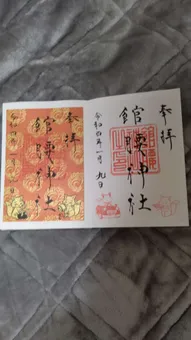 奉拝
館腰神社
令和四年一月九日
奉拝
館腰神社
令和四年